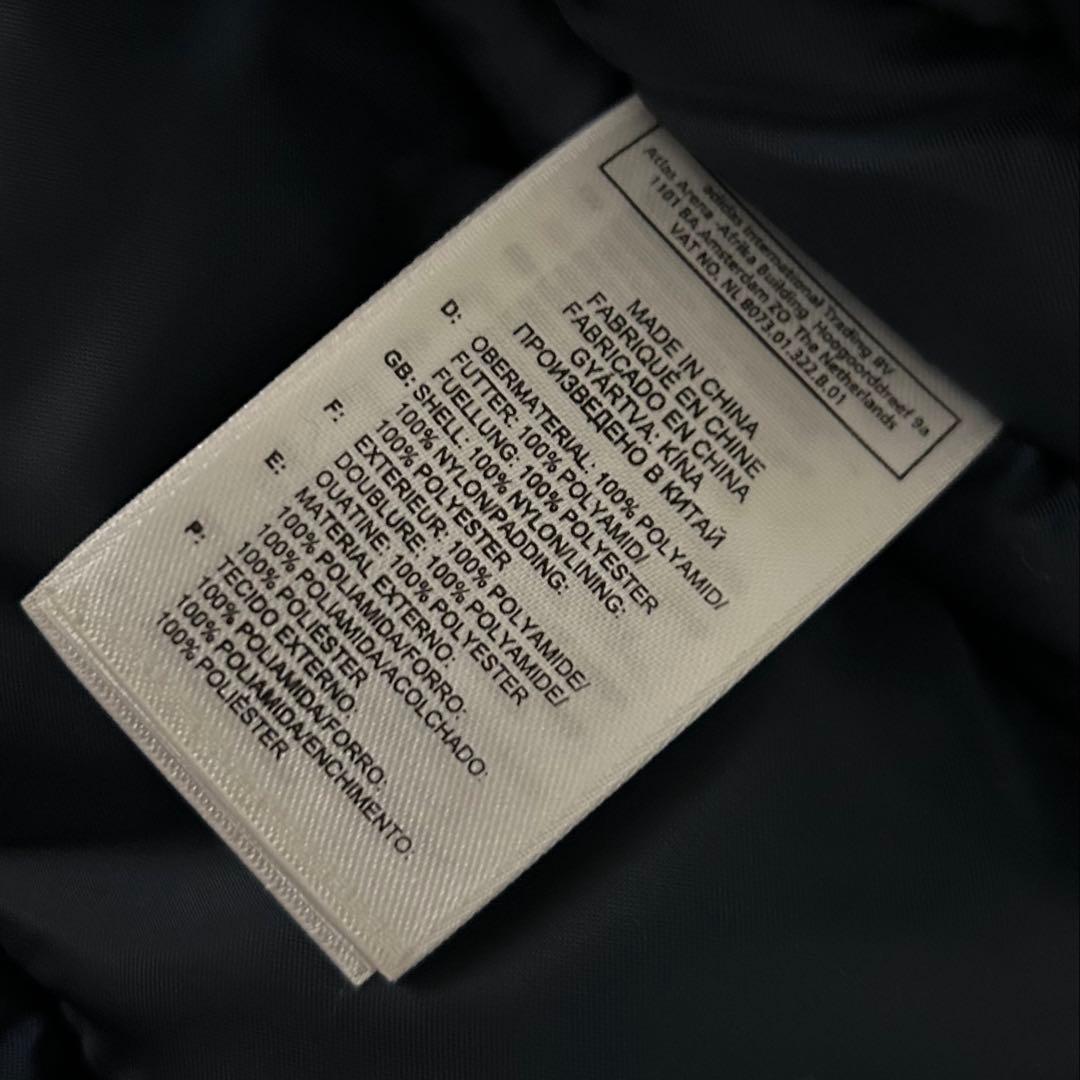 adidas International Trading BV
Atlas Arena -Afrika Building, Hoogoorddreef 9a
1101 BA Amsterdam ZO The Netherlands
VAT NO. NL 8073.01.322.B.01
MADE IN CHINA
FABRIQUÉ EN CHINE
FABRICADO EN CHINA
GYÁRTVA: KÍNA
ПРОИЗВЕДЕНО В КИТАЙ
D: OBERMATERIAL: 100% POLYAMID/
FUTTER: 100% POLYAMID/
FUELLUNG: 100% POLYESTER
GB: SHELL: 100% NYLON/LINING:
100% NYLON/PADDING:
100% POLYESTER
F: EXTERIEUR: 100% POLYAMIDE/
DOUBLURE: 100% POLYAMIDE/
OUATINE: 100% POLYESTER
E: MATERIAL EXTERNO:
100% POLIAMIDA/FORRO:
100% POLIAMIDA/ACOLCHADO:
100% POLIÉSTER
P: TECIDO EXTERNO,
100% POLIAMIDA/FORRO:
100% POLIAMIDA/ENCHIMENTO:
100% POLIÉSTER